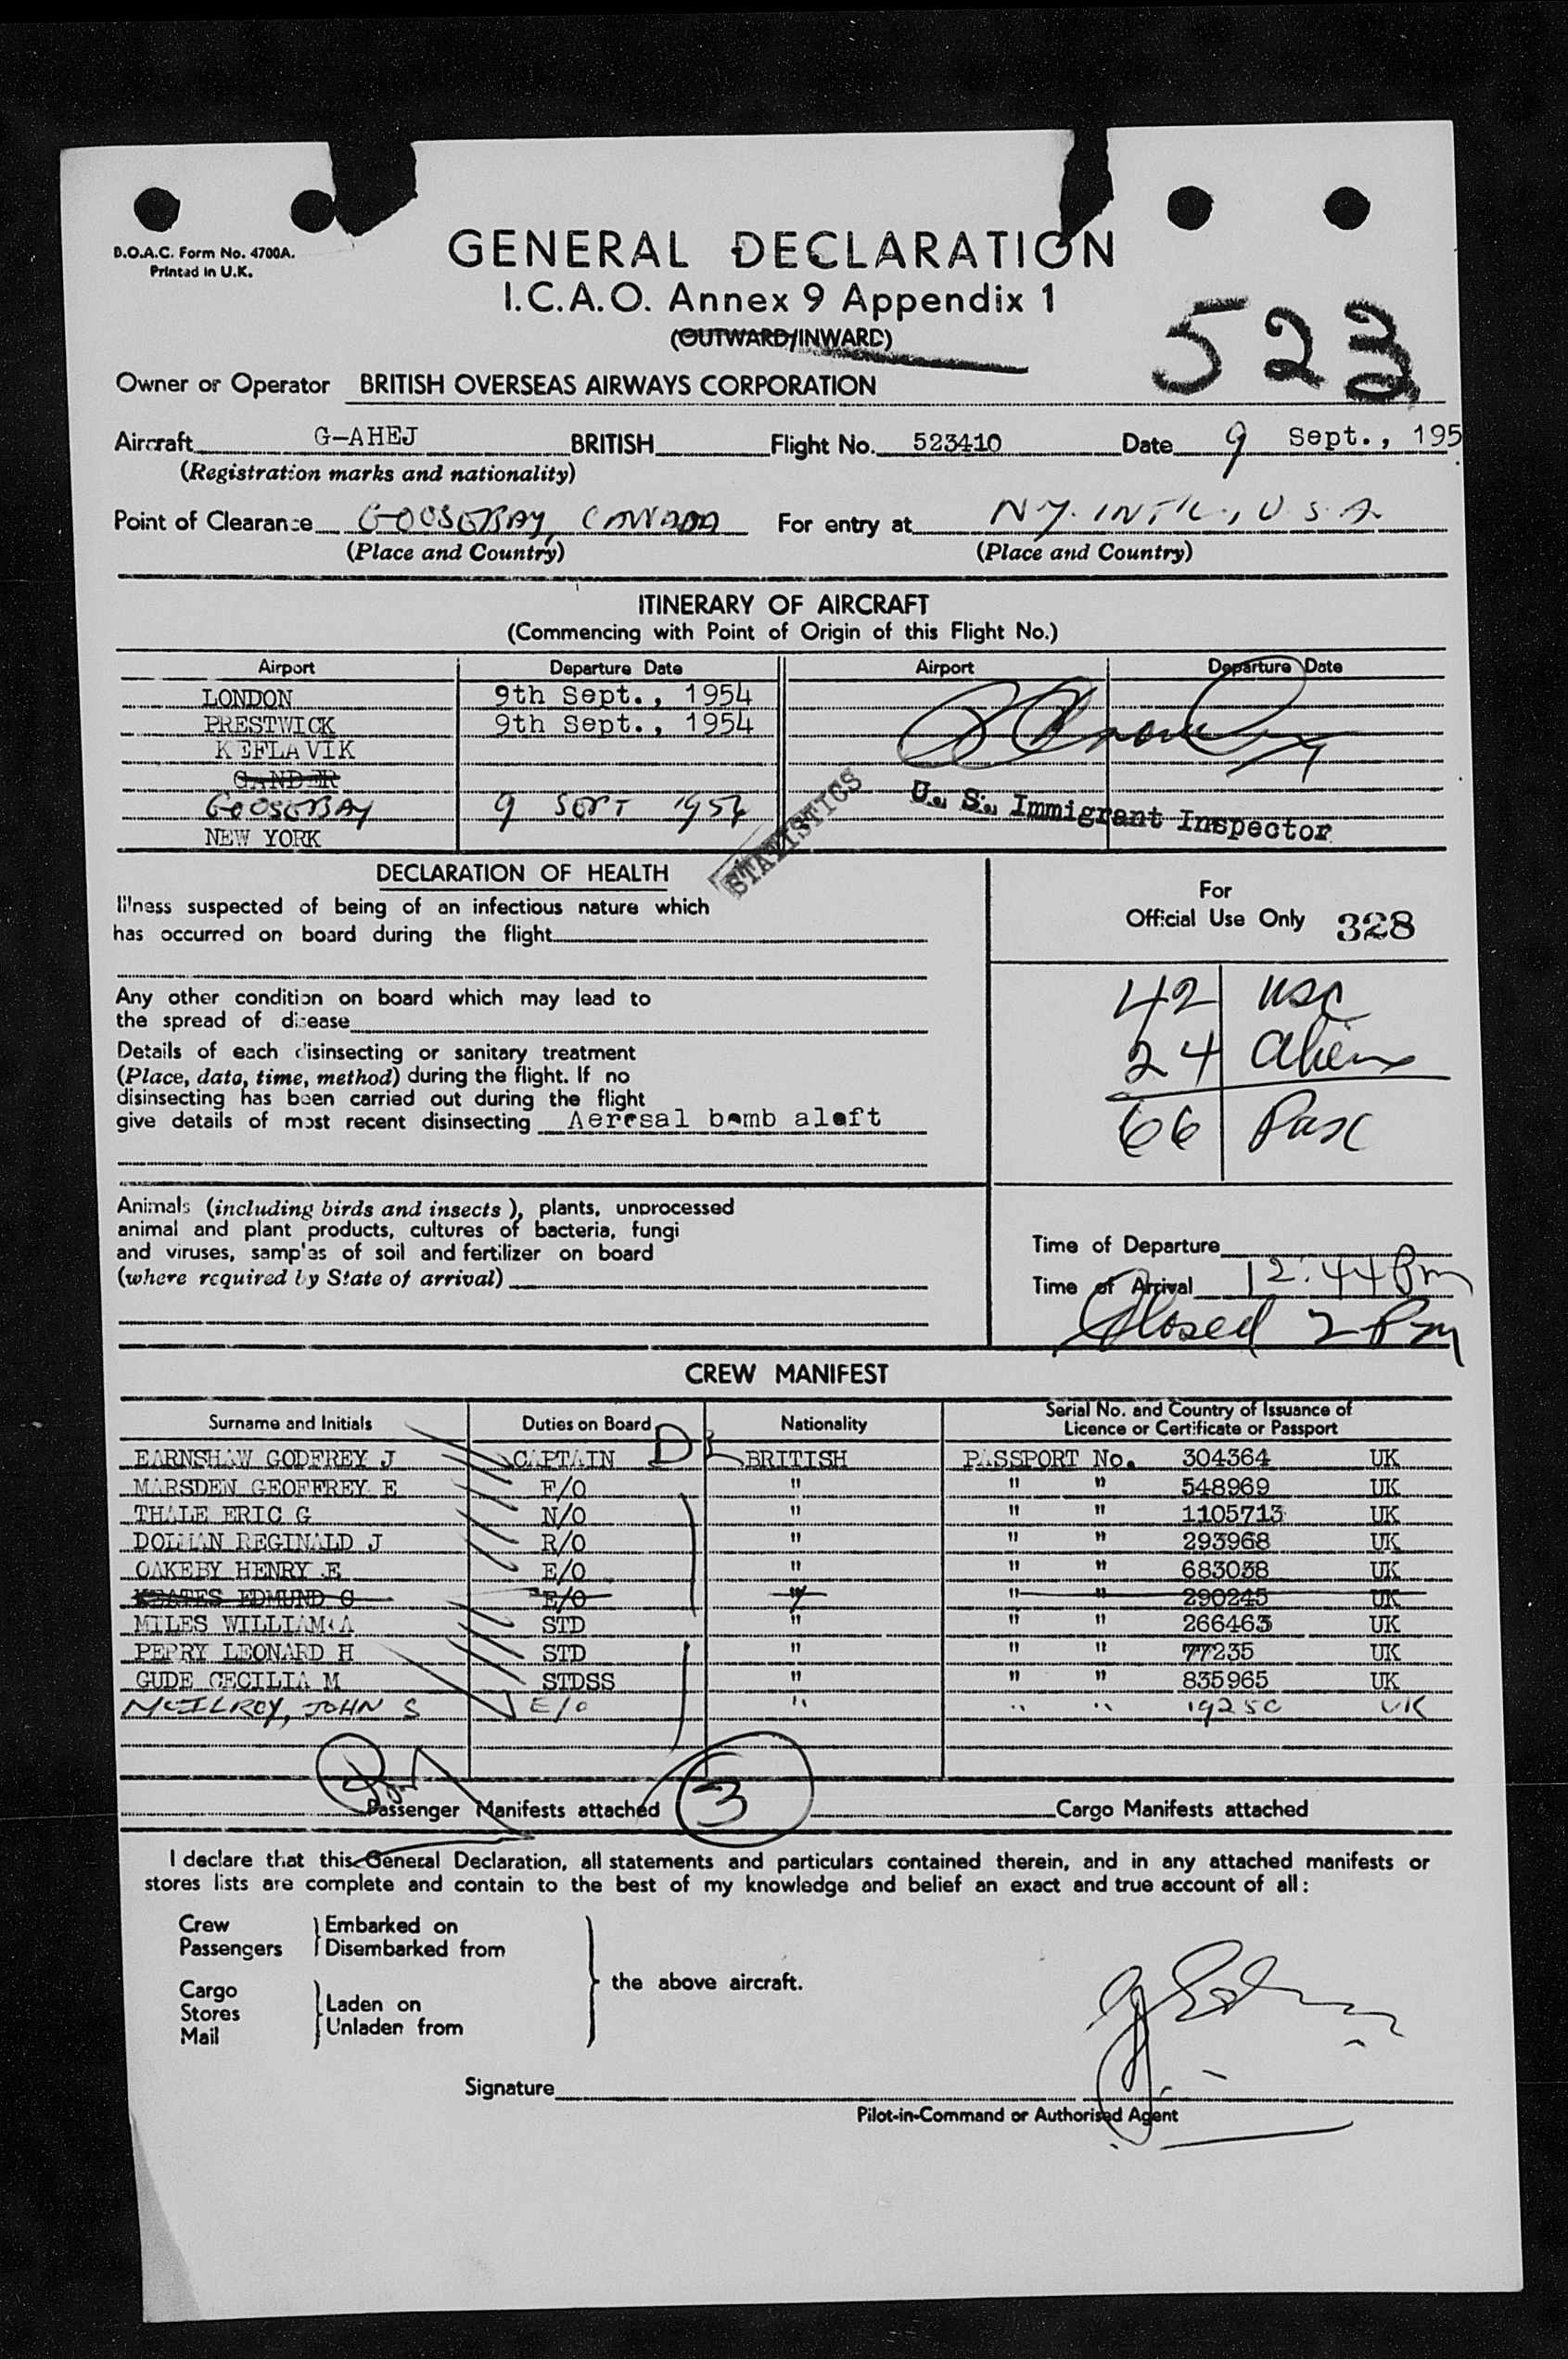 B.O.A.C. Form No. 4700A.
Printed in U.K.
GENERAL DECLARATION
I.C.A.O. Annex 9 Appendix 1
(OUTWARD/INWARD)
523
Owner or Operator BRITISH OVERSEAS AIRWAYS CORPORATION
Aircraft G-AHEJ BRITISH Flight No. 523410 Date 9 Sept., 195
(Registration marks and nationality)
Point of Clearance GOOSEBAY, CANADA For entry at N.Y. INT'L., U.S.A.
(Place and Country) (Place and Country)
ITINERARY OF AIRCRAFT
(Commencing with Point of Origin of this Flight No.)
Airport Departure Date Airport Departure Date
LONDON 9th Sept., 1954
PRESTWICK 9th Sept., 1954
KEFLAVIK
GANDER
GOOSEBAY 9 SEPT 1954
U. S. Immigrant Inspector
NEW YORK
STATISTICS
DECLARATION OF HEALTH
Illness suspected of being of an infectious nature which
has occurred on board during the flight
For
Official Use Only 328
Any other condition on board which may lead to
the spread of disease
42 USC
24 Aliens
66 Pax
Details of each disinsecting or sanitary treatment
(Place, date, time, method) during the flight. If no
disinsecting has been carried out during the flight
give details of most recent disinsecting Aerosal bomb aloft
Animals (including birds and insects), plants, unprocessed
animal and plant products, cultures of bacteria, fungi
and viruses, samples of soil and fertilizer on board
(where required by State of arrival)
Time of Departure
Time of Arrival 12:44 Pm
Closed 2 Pm
CREW MANIFEST
Surname and Initials Duties on Board Nationality Serial No. and Country of Issuance of
Licence or Certificate or Passport
EARNSHAW GODFREY J CAPTAIN BRITISH PASSPORT No. 304364 UK
MARSDEN GEOFFREY E F/O " " " 548969 UK
THALE ERIC G N/O " " " 1105713 UK
DOLMAN REGINALD J R/O " " " 293968 UK
OAKEBY HENRY E E/O " " " 683038 UK
KEATES EDMUND G E/O " " " 290245 UK
MILES WILLIAM A STD " " " 266463 UK
PERRY LEONARD H STD " " " 77235 UK
GUDE CECILIA M STDSS " " " 835965 UK
McILROY, JOHN S E/O " " " 19250 UK
Passenger Manifests attached 3 Cargo Manifests attached
I declare that this General Declaration, all statements and particulars contained therein, and in any attached manifests or
stores lists are complete and contain to the best of my knowledge and belief an exact and true account of all:
Crew
Passengers
Embarked on
Disembarked from
Cargo
Stores
Mail
Laden on
Unladen from
the above aircraft.
Signature
Pilot-in-Command or Authorised Agent